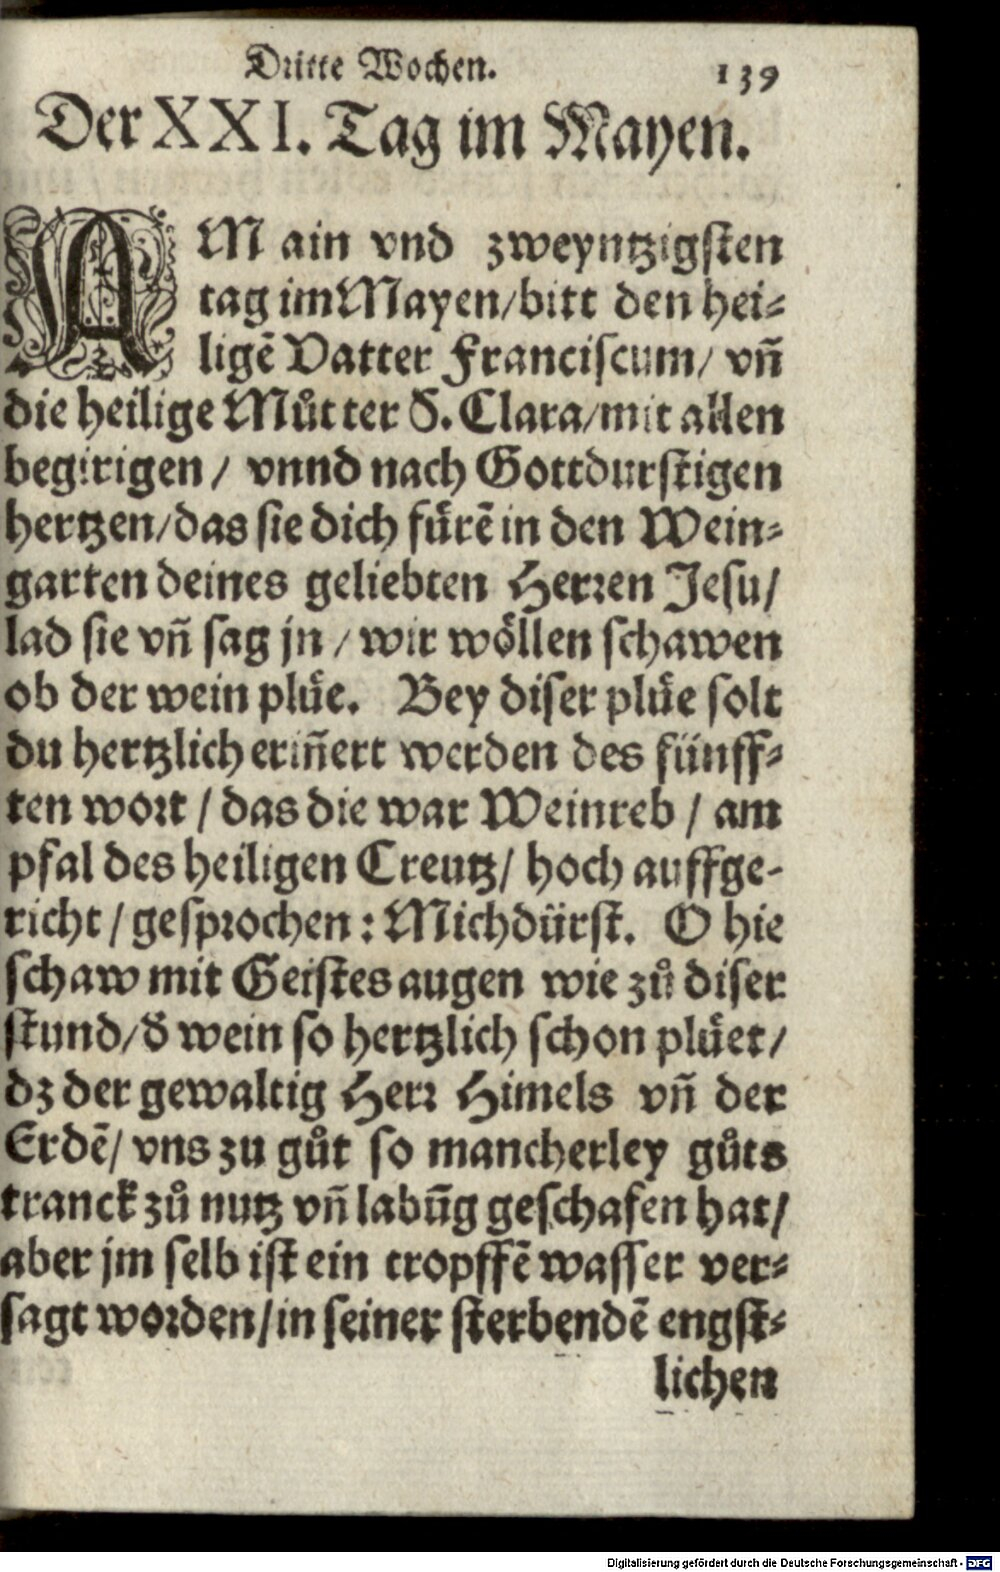 Dritte Wochen. 139
Der XXI. Tag im Mayen.
AM ain vnd zweyntzigsten
tag im Mayen/bitt den hei-
ligē Vatter Franciscum/ vn̄
die heilige Můtter S. Clara/mit allen
begirigen / vnnd nach Gottdurstigen
hertzen/das sie dich fürē in den Wein-
garten deines geliebten Herren Jesu/
lad sie vn̄ sag jn / wir wöllen schawen
ob der wein plüe. Bey diser plüe solt
du hertzlich erin̄ert werden des fünff-
ten wort / das die war Weinreb / am
pfal des heiligen Creutz/ hoch auffge-
richt / gesprochen : Mich dürst. O hie
schaw mit Geistes augen wie zů diser
stund/d̄ wein so hertzlich schon plüet/
dz der gewaltig Herr Himels vn̄ der
Erdē/ vns zu gůt so mancherley gůts
tranck zů nutz vn̄ labūg geschafen hat/
aber jm selb ist ein tropffē wasser ver-
sagt worden/in seiner sterbendē engst-
lichen
Digitalisierung gefördert durch die Deutsche Forschungsgemeinschaft - DFG